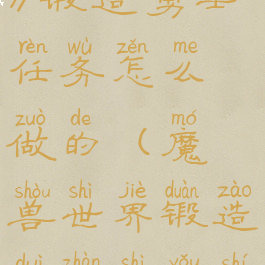 锻造
rèn wù zěn me
任务怎么
zuò de mó
做的（魔
shòu shì jiè duàn zào
兽世界锻造
duì zhàn shì yǒu shí